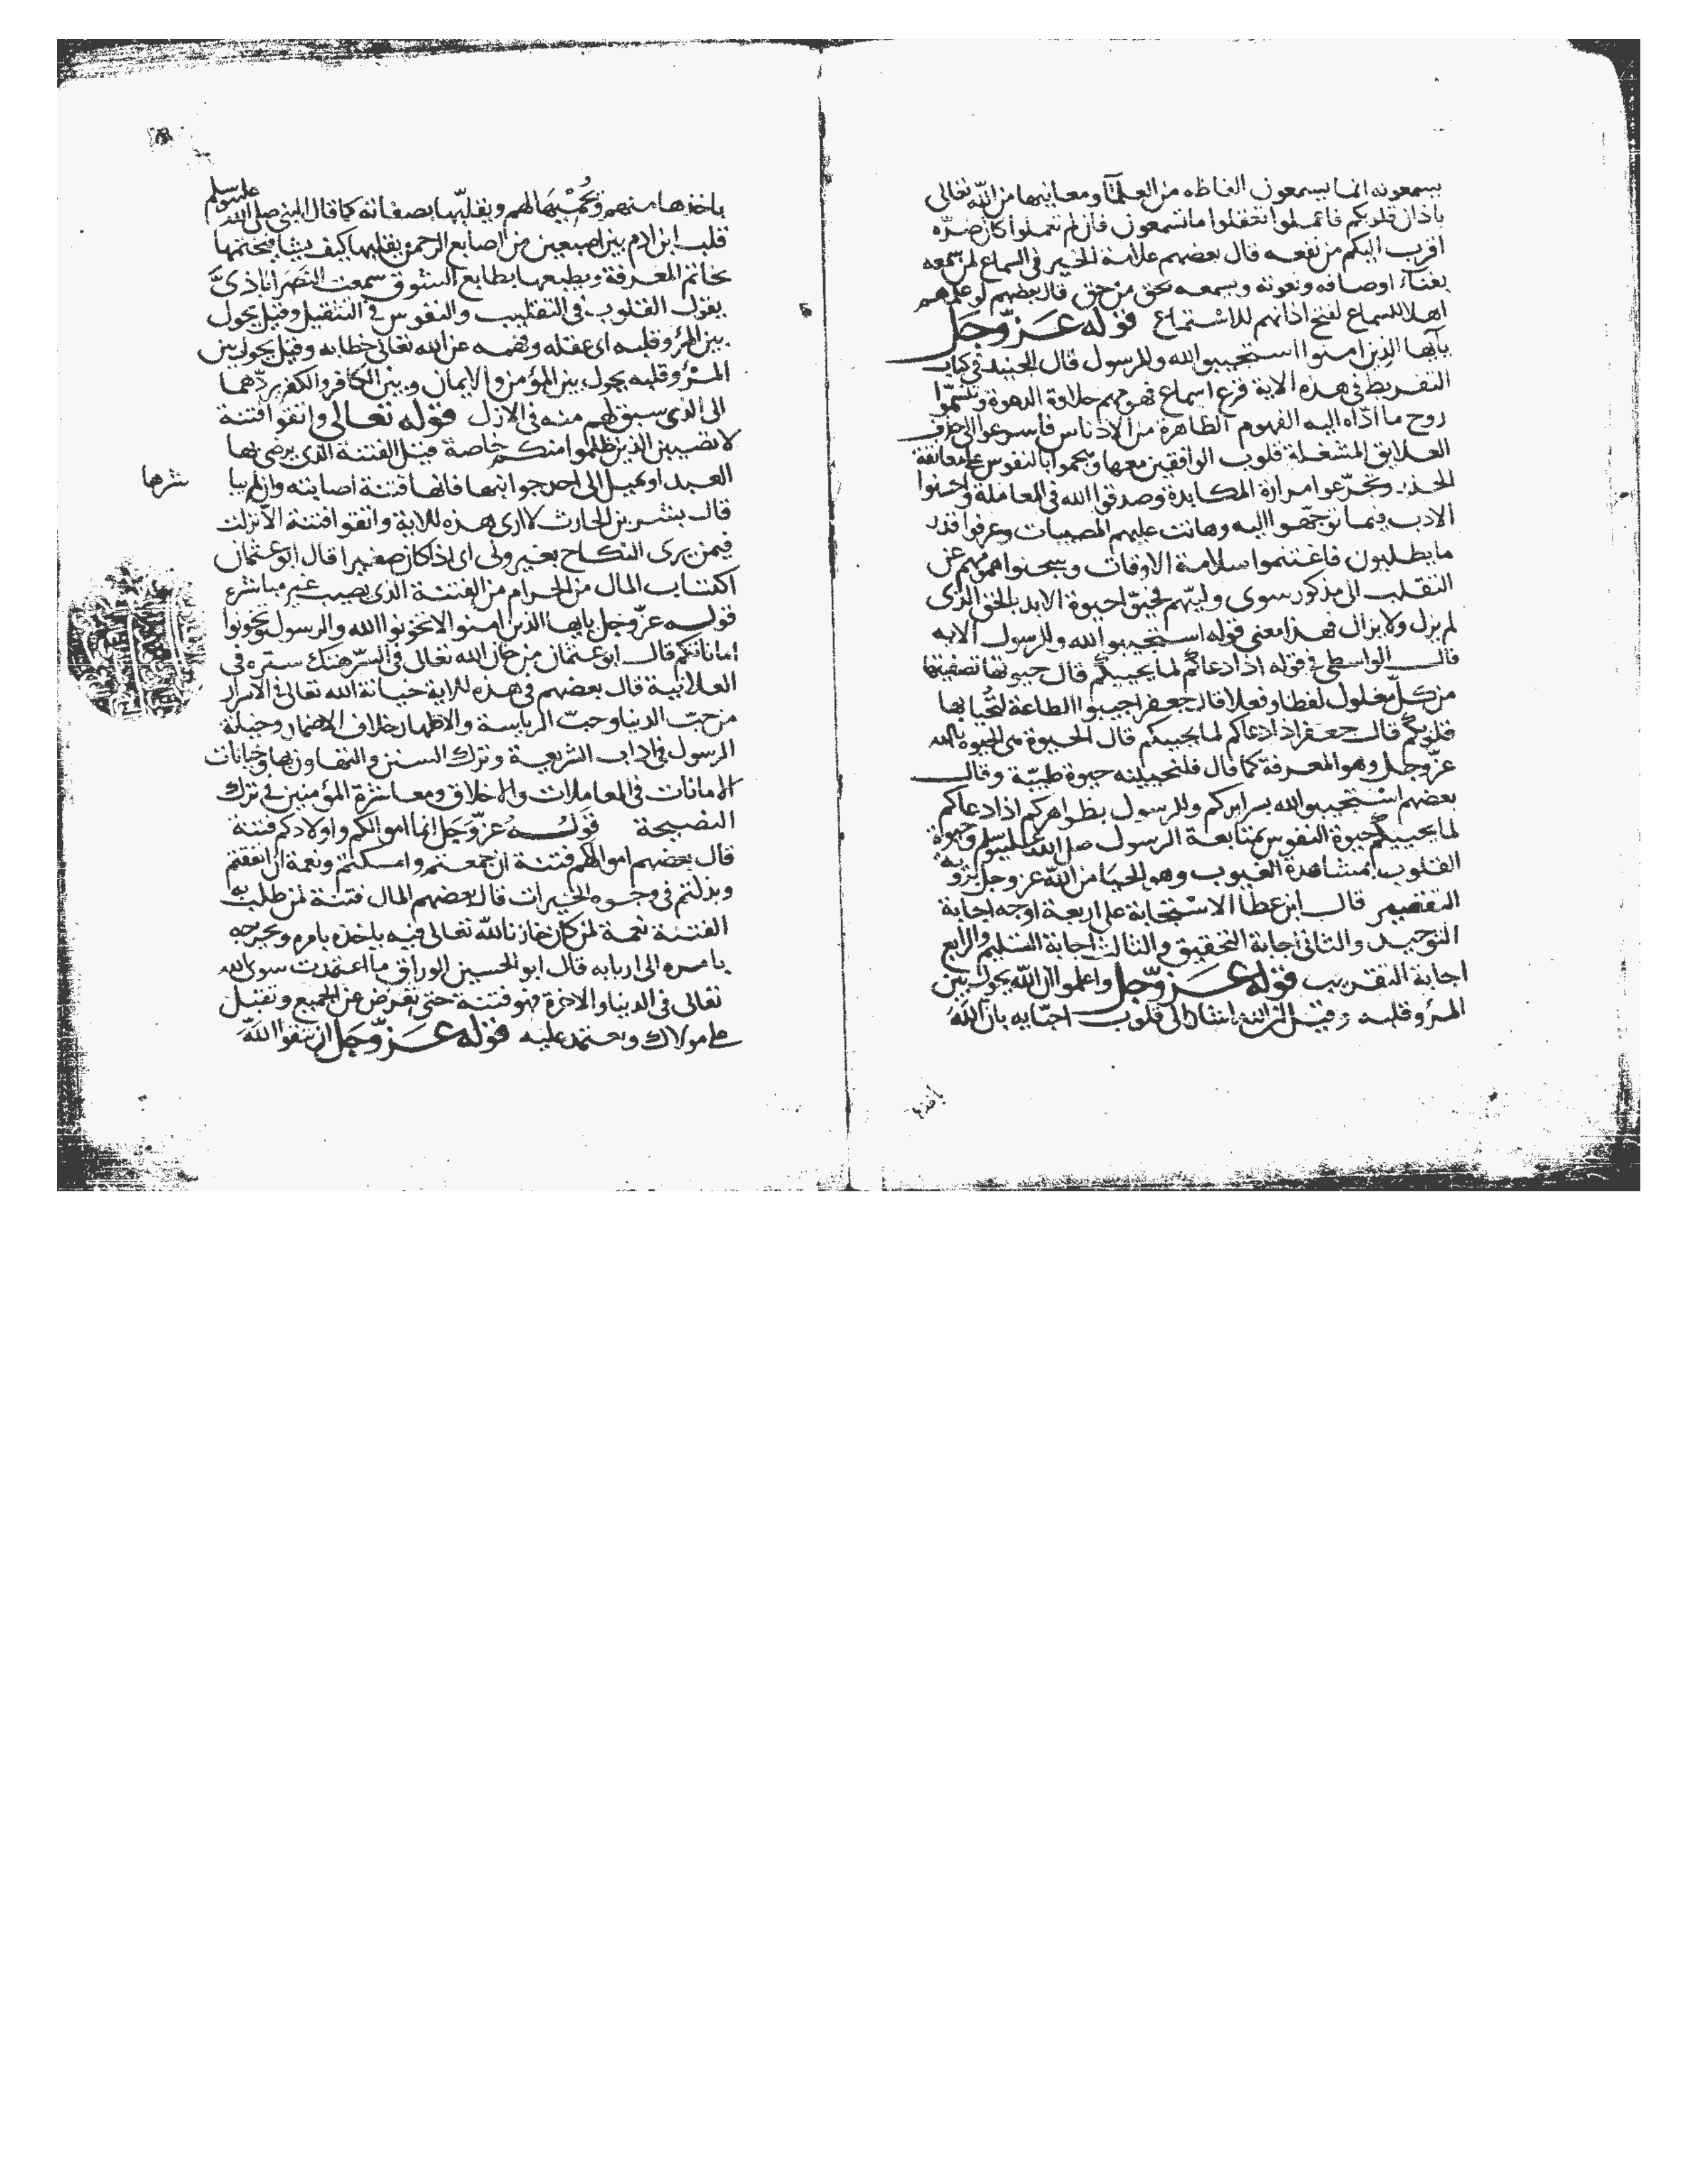 يسمعونه انما يسمعون الفاظه من العلماء ومعانيها من الله تعالى
باذان قلوبكم فاعملوا تعقلوا ما تسمعون فان لم تعملوا كان ضره
اقرب اليكم من نفعه قال بعضهم علامة الخير في السماع لمن سمعه
بفناء اوصافه ونعوته ويسمعه بحق من حق قال بعضهم لو علمهم
اهلا للسماع لفتح اذانهم للاستماع قوله عز وجل
يا ايها الذين امنوا استجيبوا لله وللرسول قال الجنيد في كتاب
التفريط في هذه الاية قرع اسماع فهومهم حلاوة الدعوة وتنسموا
روح ما اداه اليه الفهوم الطاهرة من الادناس فاسرعوا الى حذف
العلايق المشغلة قلوب الوافقين معها وهجموا بالنفوس على معانقة
الحذر وتجرعوا مرارة المكابدة وصدقوا الله في المعاملة واحسنوا
الادب فيما توجهوا اليه وهانت عليهم المصيبات وعرفوا قدر
ما يطلبون فاغتنموا سلامة الاوقات وسجنوا همومهم عن
التقلب الى مذكور سوى وليهم فحيوا حيوة الابد بالحق الذى
لم يزل ولا يزال فهذا معنى قوله استجيبوا لله وللرسول الاية
قال الواسطى في قوله اذا دعاكم لما يحييكم قال حيوتها تصفيتها
من كل معلول لفظا وفعلا قال جعفر اجيبوا الطاعة لتحيا بها
قلوبكم قال جعفر اذا دعاكم لما يحييكم قال الحيوة هى الحيوة بالله
عز وجل وهو المعرفة كما قال فلنحيينه حيوة طيبة وقال
بعضهم استجيبوا لله بسرايركم وللرسول بظواهركم اذا دعاكم
لما يحييكم حيوة النفوس بمتابعة الرسول صلى الله عليه وسلم وحيوة
القلوب بمشاهدة الغيوب وهو الحيا من الله عز وجل برؤية
التقصير قال ابن عطا الاستجابة على اربعة اوجه اجابة
التوحيد والثانى اجابة التحقيق والثالث اجابة التسليم والرابع
اجابة التقريب قوله عز وجل واعلموا ان الله يحول بين
المرء وقلبه وقيل ان الله اشار الى قلوب احبابه بان الله
ياخذها
ياخذها منهم ويحميها لهم ويقلبها بصفاته كما قال النبى صلى الله عليه وسلم
قلب ابن ادم بين اصبعين من اصابع الرحمن يقلبها كيف يشا فيختمها
بخاتم المعرفة ويطبعها بطابع الشوق سمعت النصراباذى
يقول القلوب في التقليب والنفوس في التنقيل وقيل يحول
بين المرء وقلبه اى عقله وفهمه عن الله تعالى خطابه وقيل يحول بين
المرء وقلبه يحول بين المؤمن والايمان وبين الكافر والكفر يردهما
الى الذى سبق لهم منه في الازل قوله تعالى واتقوا فتنة
لا تصيبن الذين ظلموا منكم خاصة قيل الفتنة الذى يرضى بها
العبد او يميل الى احد جوانبها فانها فتنة اصابته وان لم يبا
شرها
قال بشر بن الحارث لا ارى هذه الاية واتقوا فتنة الا نزلت
فيمن يرى النكاح بغير ولى اى اذا كان صغيرا قال ابو عثمان
اكتساب المال من الحرام من الفتنة الذى يصيب غير مباشره
قوله عز وجل يا ايها الذين امنوا لا تخونوا الله والرسول وتخونوا
اماناتكم قال ابو عثمان من خان الله تعالى في السر هتك ستره في
العلانية قال بعضهم في هذه الاية خيانة الله تعالى في الاسرار
من حب الدنيا وحب الرياسة والاظهار خلاف الاضمار وخيانة
الرسول في اداب الشريعة وترك السنن والتهاون بها وخيانات
الامانات في المعاملات والاخلاق ومعاشرة المؤمنين في ترك
النصيحة قوله عز وجل انما اموالكم واولادكم فتنة
قال بعضهم اموالكم فتنة ان جمعتم وامسكتم ونعمة ان انفقتم
وبذلتم في وجوه الخيرات قال بعضهم المال فتنة لمن طلب به
الفتنة نعمة لمن كان خازنا لله تعالى فيه ياخذه بامره ويخرجه
بامره الى اربابه قال ابو الحسين الوراق ما اعتمدت سوى الله
تعالى في الدنيا والاخرة فهو فتنة حتى تعرض عن الجميع وتقبل
على مولاك وتعتمد عليه قوله عز وجل ان تتقوا الله